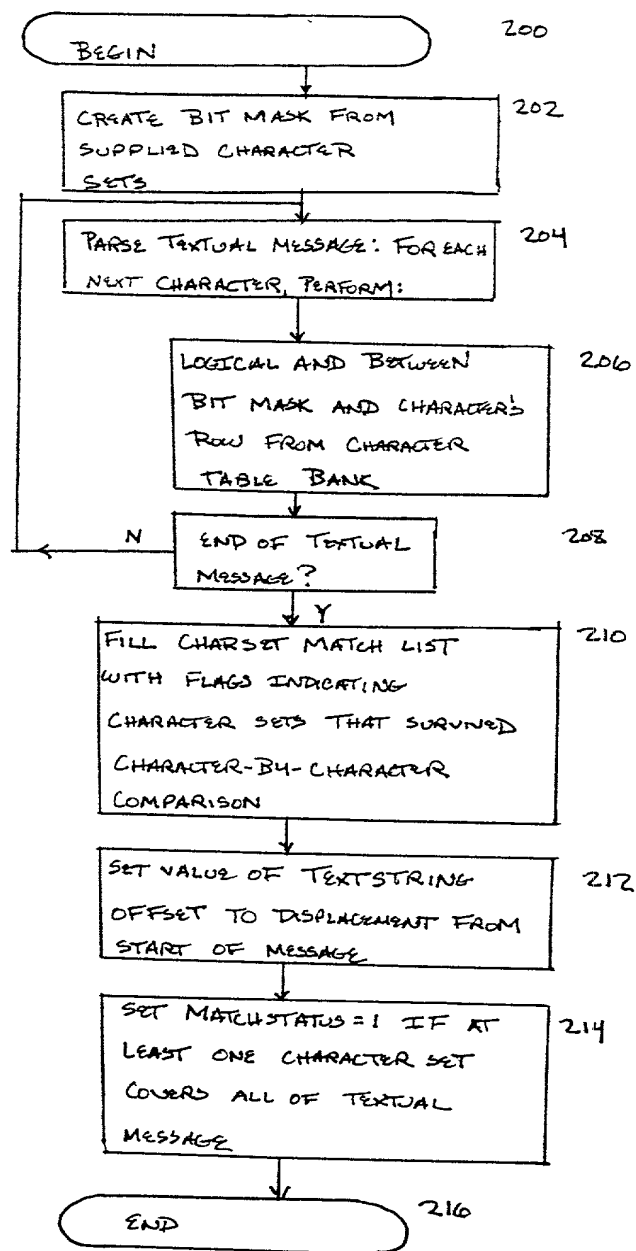 200
BEGIN
202
CREATE BIT MASK FROM
SUPPLIED CHARACTER
SETS
204
PARSE TEXTUAL MESSAGE: FOR EACH
NEXT CHARACTER, PERFORM:
206
LOGICAL AND BETWEEN
BIT MASK AND CHARACTER'S
ROW FROM CHARACTER
TABLE BANK
208
N
END OF TEXTUAL
MESSAGE?
Y
210
FILL CHARSET MATCH LIST
WITH FLAGS INDICATING
CHARACTER SETS THAT SURVIVED
CHARACTER-BY-CHARACTER
COMPARISON
212
SET VALUE OF TEXTSTRING
OFFSET TO DISPLACEMENT FROM
START OF MESSAGE
214
SET MATCHSTATUS=1 IF AT
LEAST ONE CHARACTER SET
COVERS ALL OF TEXTUAL
MESSAGE
216
END